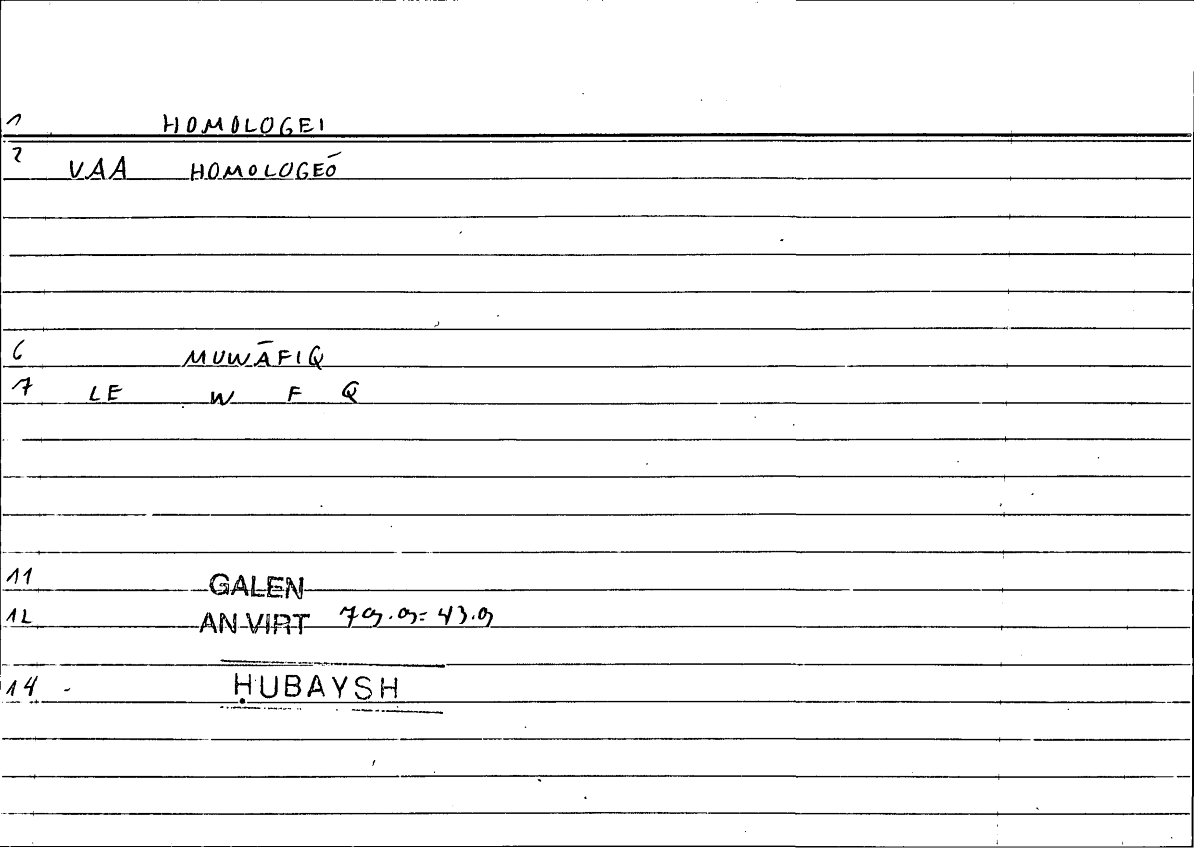 1 HOMOLOGEI
2 VAA HOMOLOGEŌ
6 MUWĀFIQ
7 LE W F Q
11 GALEN
12 AN VIRT 79.9=43.9
14 ḤUBAYSH